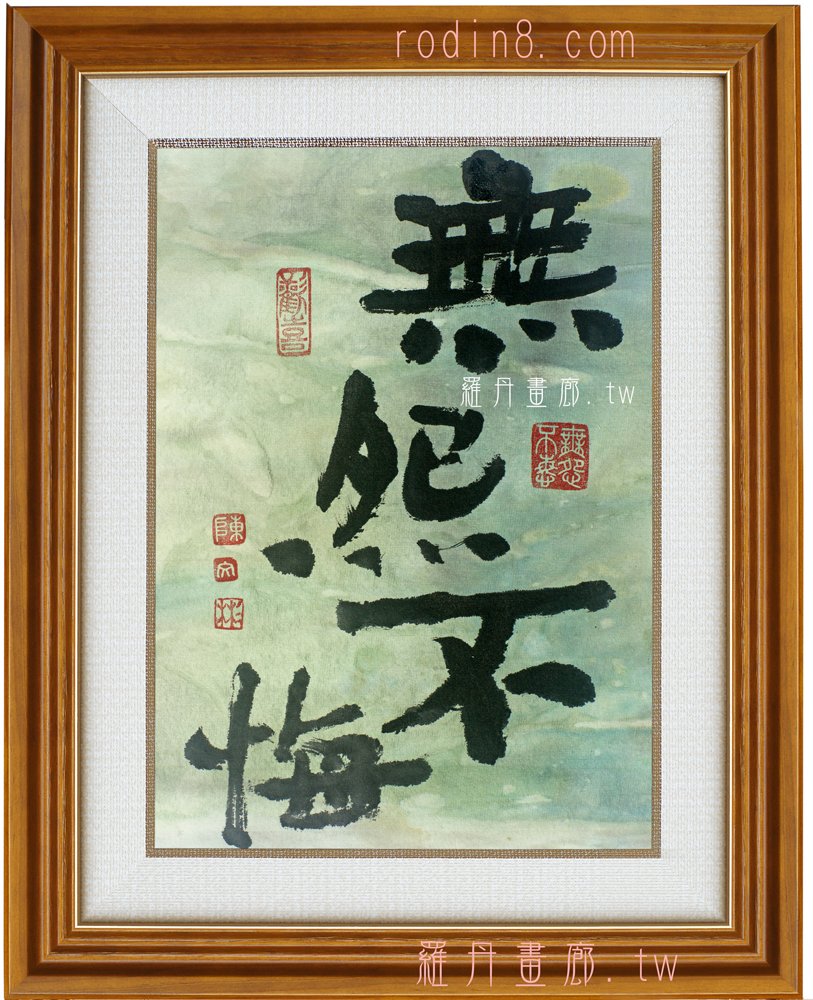 rodin8.com
無
怨
不
悔
羅丹畫廊.tw
無怨
不悔
陳
文
羅丹畫廊.tw